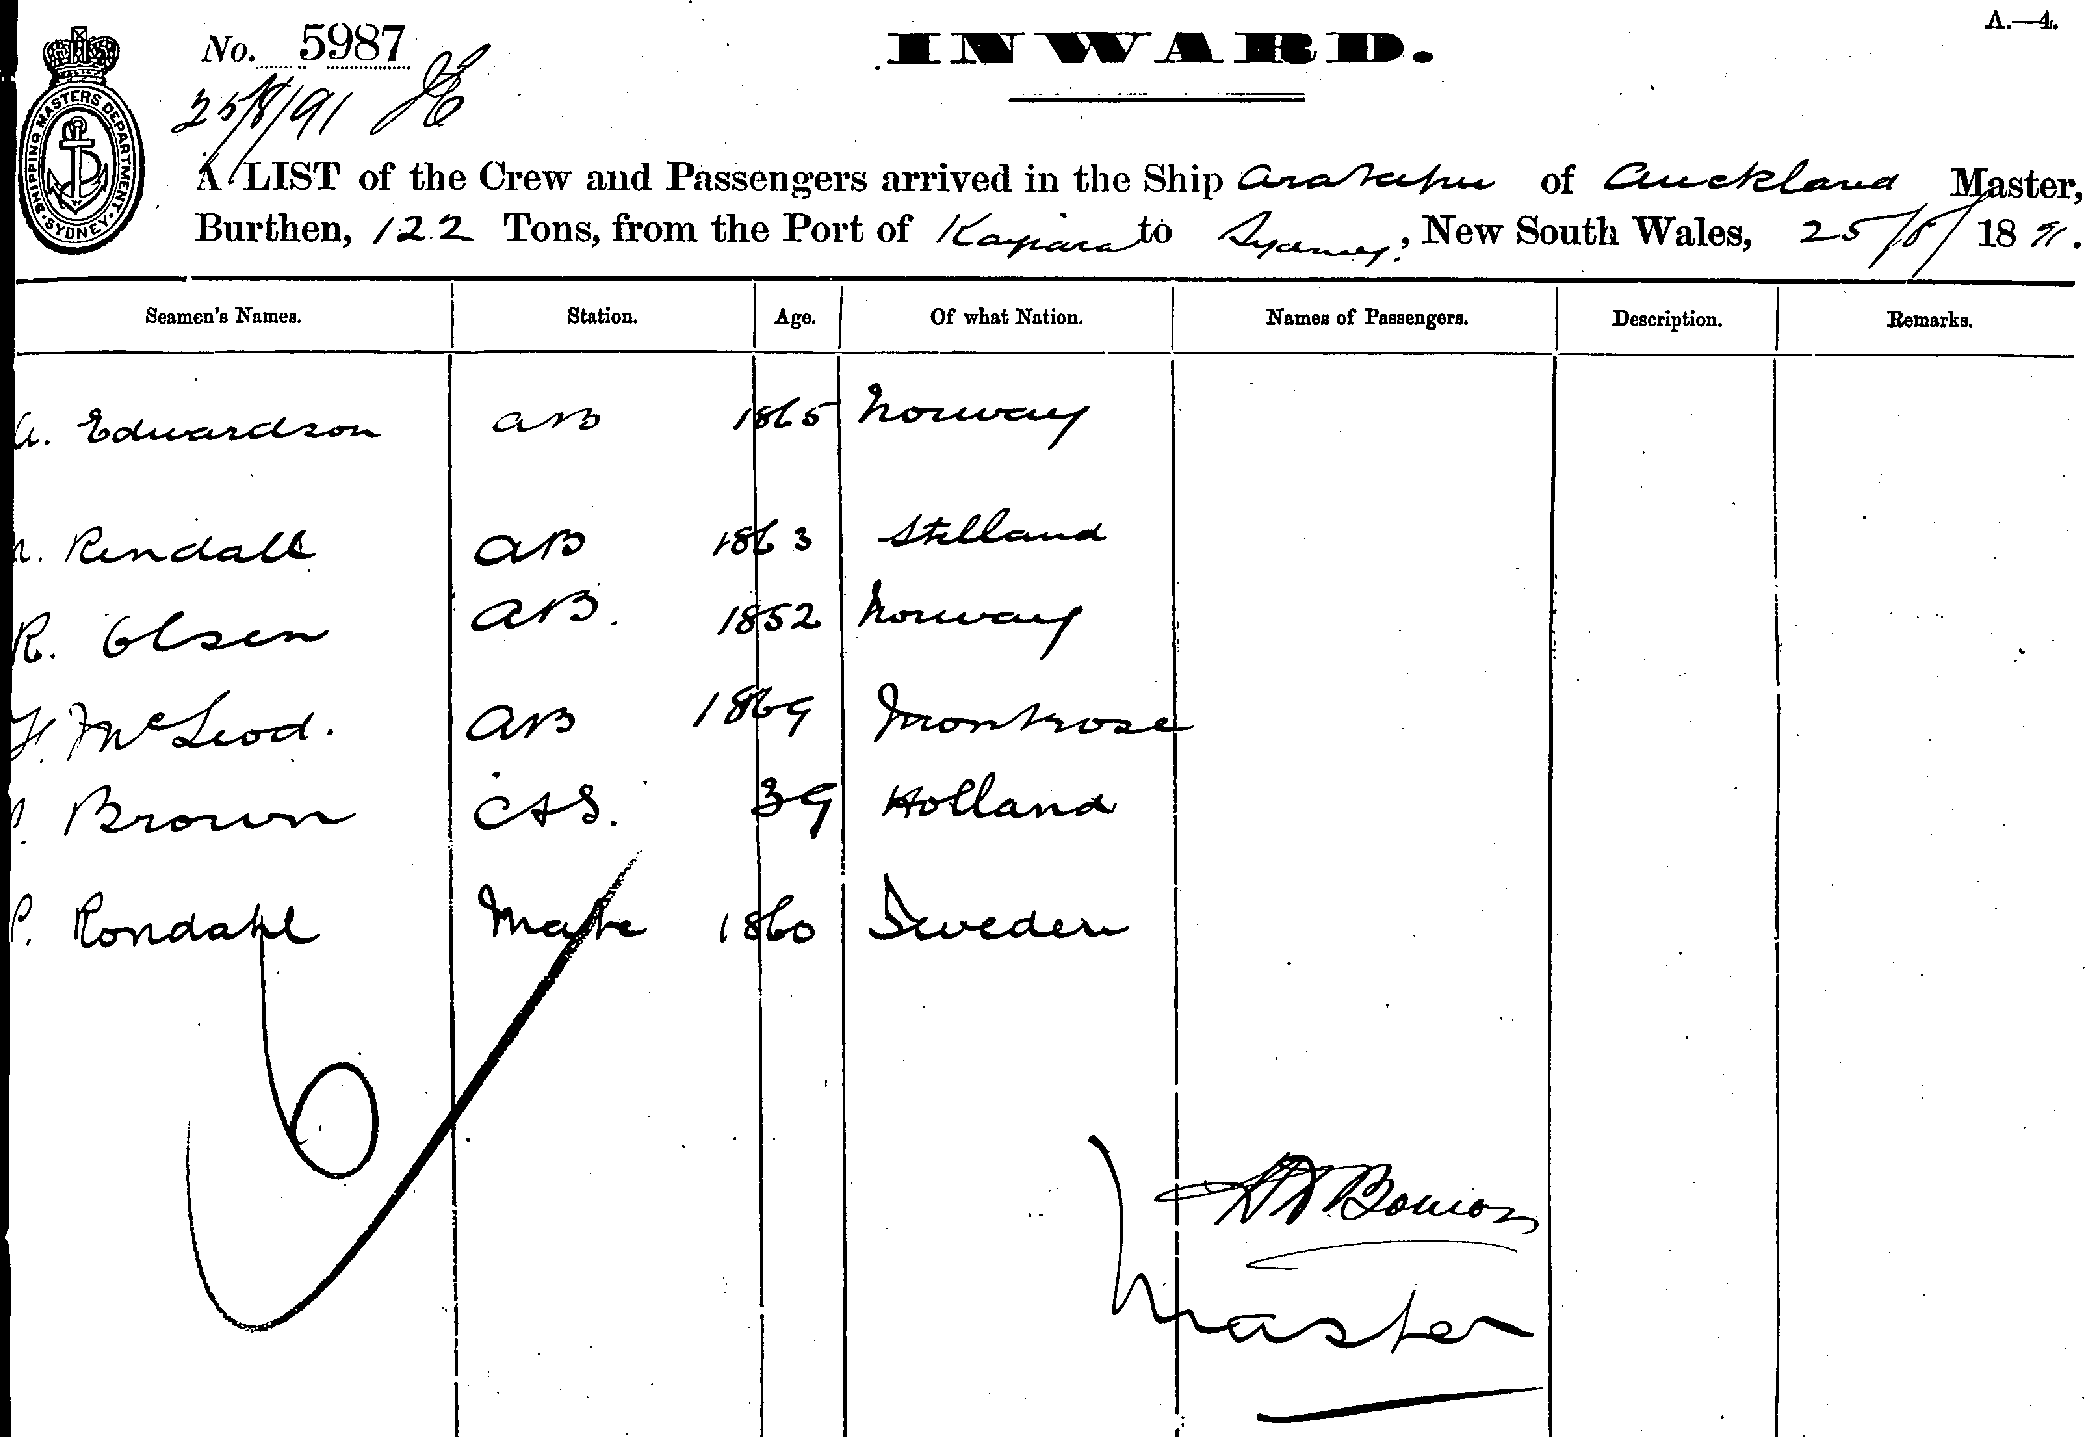 A.—4.
No. 5987
INWARD.
25/8/91
SHIPPING MASTERS DEPARTMENT
SYDNEY
A LIST of the Crew and Passengers arrived in the Ship Aratapu of Auckland Master,
Burthen, 122 Tons, from the Port of Kaipara to Sydney, New South Wales, 25/8/ 1891.
Seamen's Names. Station. Age. Of what Nation. Names of Passengers. Description. Remarks.
A. Edwardson AB 1865 Norway
Rendall AB 1863
R. Olsen AB. 1852 Norway
McLeod. AB 1869 Montrose
Brown C&S. 39 Holland
P. Rondahl Mate 1860 Sweden
6
Master